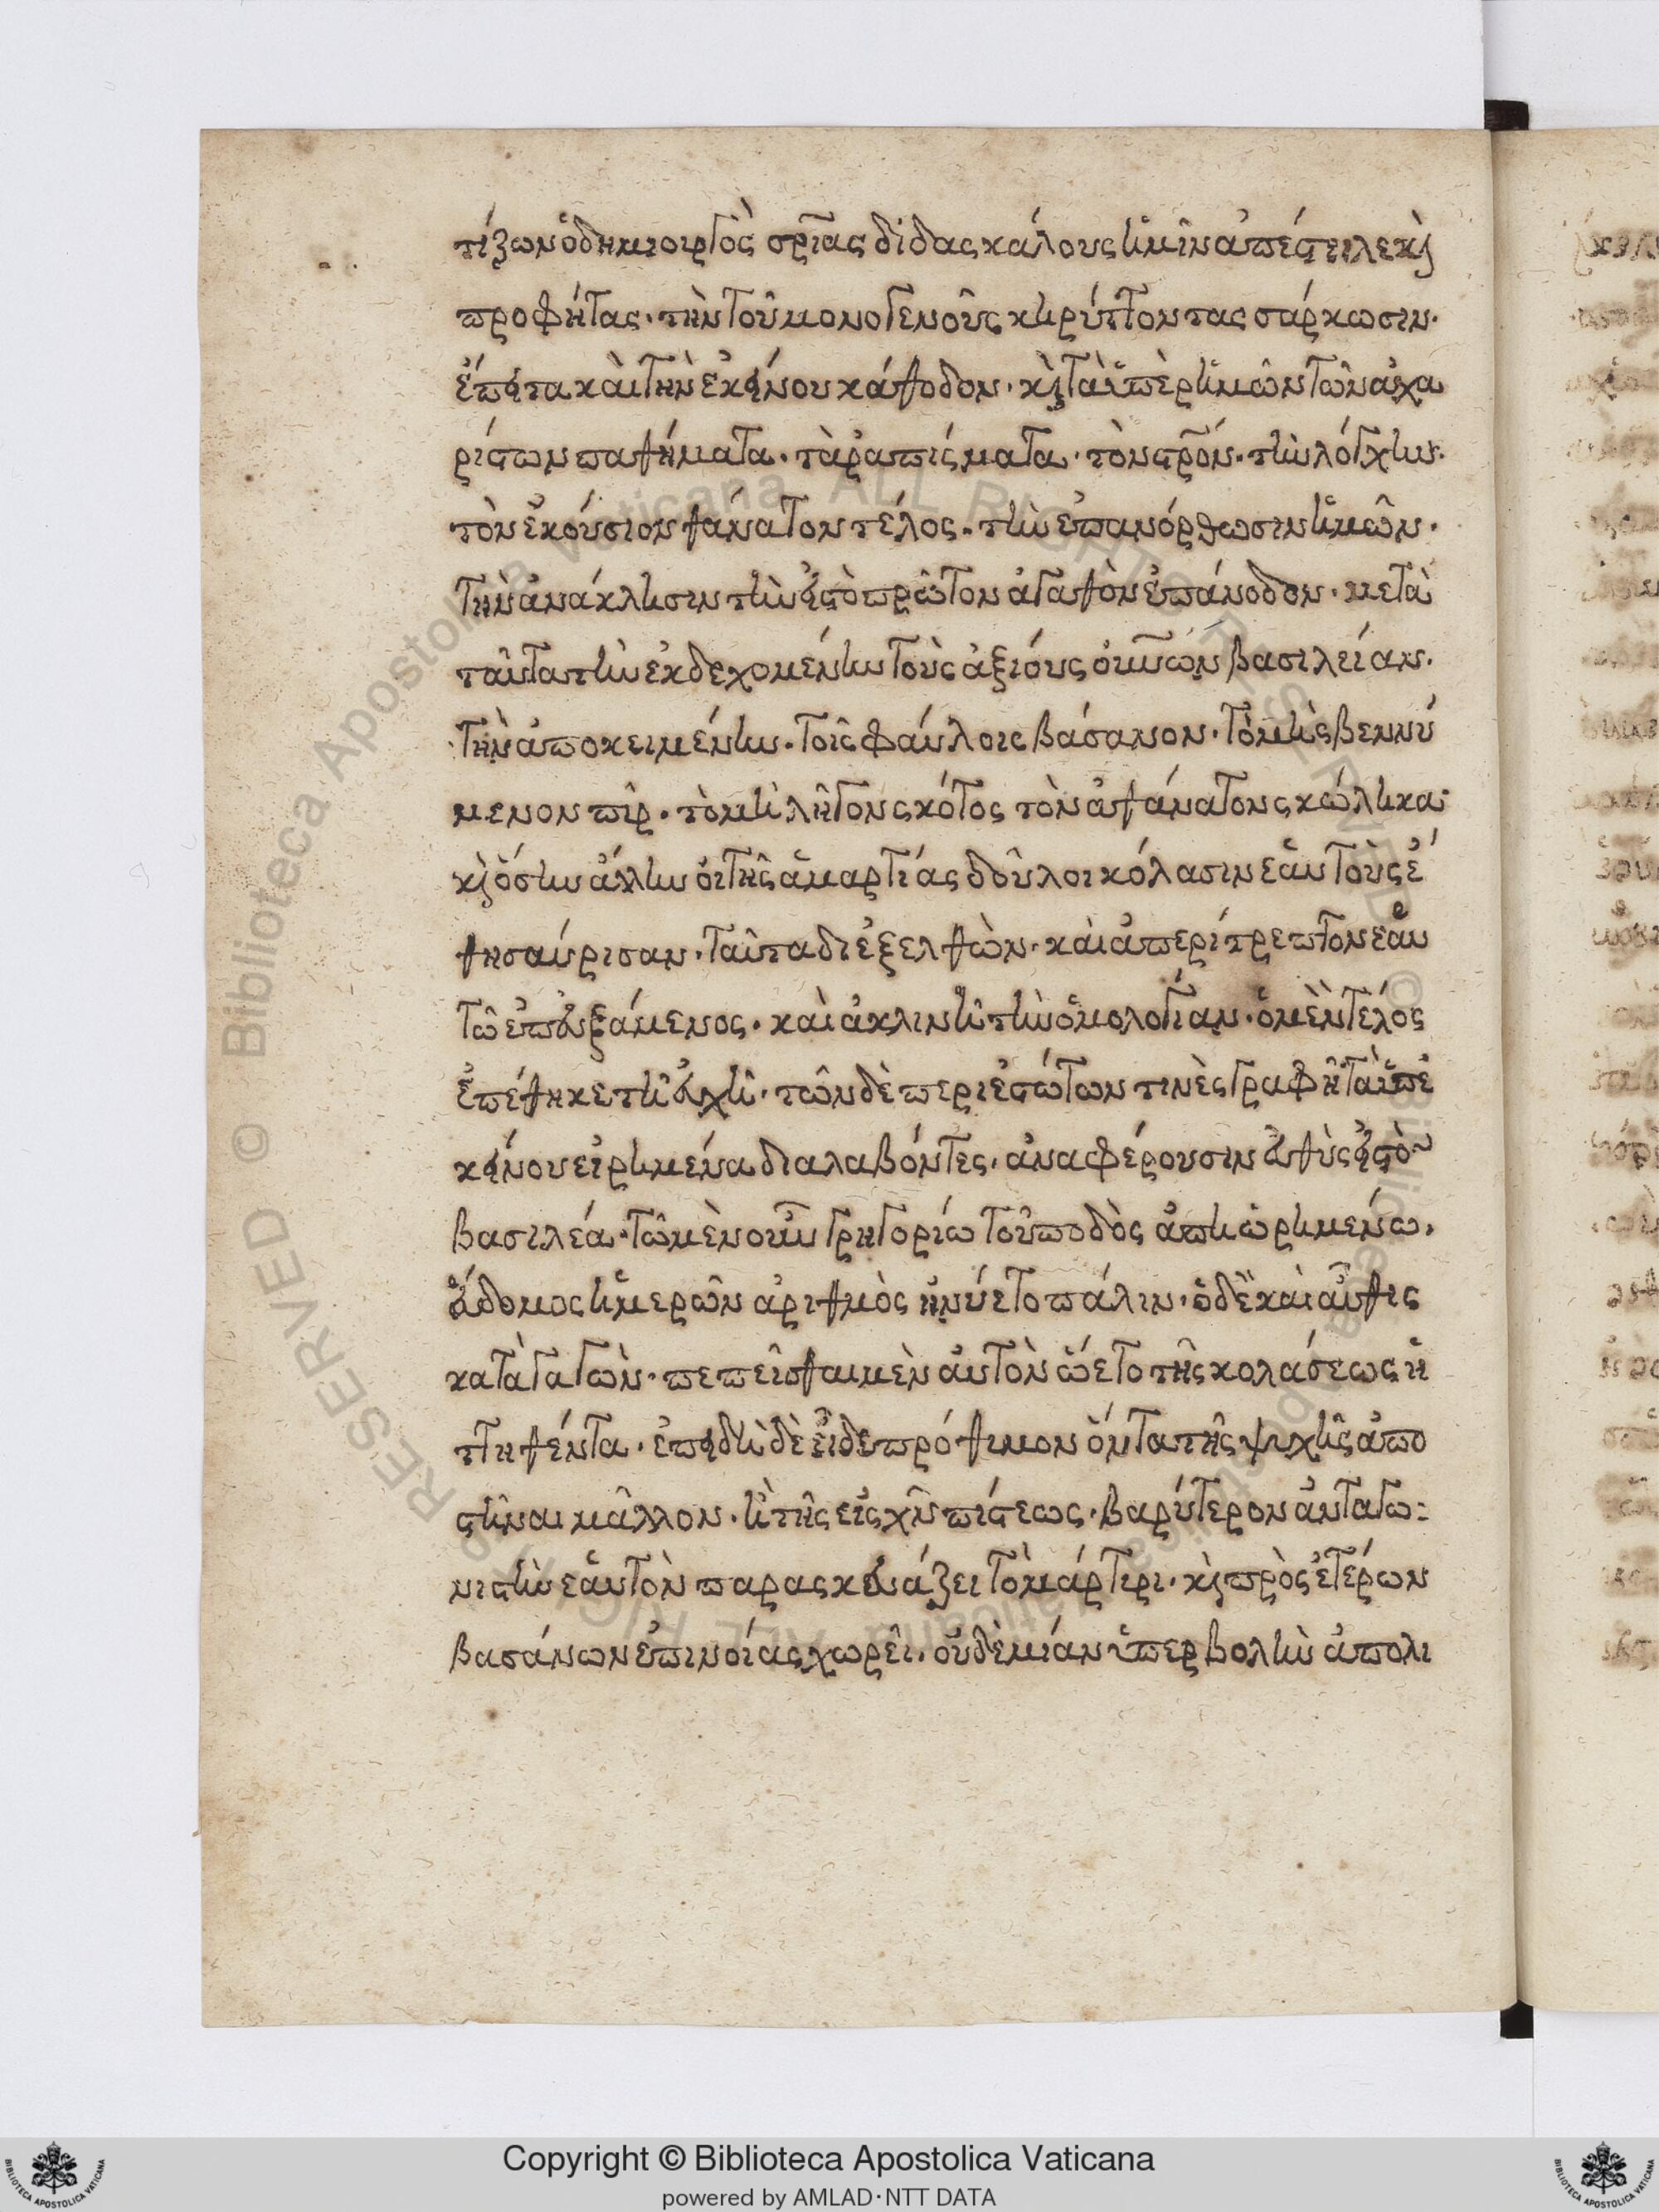 τίζων ὁ δημιουργὸς σρίας διδασκάλους ἡμῖν ἀπέστειλε κὶ
προφήτας· τὴν τοῦ μονογενοῦς κηρύττοντας σάρκωσιν·
ἔπειτα καὶ τὴν ἐκείνου κάθοδον· κὶ τὰ ὑπὲρ ἡμῶν τῶν ἀχα
ρίστων παθήματα· τὰ ῥαπίσματα· τὸν στρόν· τὴν λόγχην·
τὸν ἑκούσιον θάνατον τέλος· τὴν ἐπανόρθωσιν ἡμῶν·
τὴν ἀνάκλησιν τὴν εἰς τὸ πρῶτον ἀγαθὸν ἐπάνοδον· μετὰ
ταῦτα τὴν ἐκδεχομένην τοὺς ἀξιόυς οὐνῶν βασιλείαν·
τὴν ἀποκειμένην· τοῖς φαύλοις βάσανον· τὸ μὴ σβεννύ
μενον πῦρ· τὸ μὴ λῆγον σκότος τὸν ἀθάνατον σκώληκα·
κὶ ὅσην ἄλλην οἱ τῆς ἁμαρτίας δοῦλοι κόλασιν ἑαυτοὺς ἐ
θησαύρισαν· ταῦτα διεξελθὼν· καὶ ἀπερίτρεπτον ἑαυ
τῶ ἐπευξάμενος· καὶ ἀκλινῆ τὴν ὁμολογίαν· ὁ μὲν τέλος
ἐπέθηκε τῆ εὐχῆ· τῶν δὲ περιεστώτων τινὲς γραφῆ τὰ ὑπ ἐ
κείνου εἰρημένα διαλαβόντες· ἀναφέρουσιν εὐθὺς εἰς τὸν
βασιλέα· τῶ μὲν οὖν γρηγορίω τοῦ ποδὸς ἀπηωρημένω·
ἕβδομος ἡμερῶν ἀριθμὸς ἠνύετο πάλιν· ὁ δὲ καὶ αὖθις
καταγαγὼν· πεπεῖσθαι μὲν αὐτὸν ὤετο τῆς κολάσεως ἡ
ττηθέντα· ἐπειδὴ δὲ εἶδε πρόθυμον ὄντα τῆς ψυχῆς ἀπο
στῆναι μᾶλλον· ἢ τῆς εἰς χν πίστεως· βαρύτερον ἀνταγω
νιστὴν ἑαυτὸν παρασκευάζει τὸ μάρτυρι· κὶ πρὸς ἑτέρων
βασάνων ἐπινοίας χωρεῖ· οὐδὲ μίαν ὑπερβολὴν ἀπολι
Copyright © Biblioteca Apostolica Vaticana
powered by AMLAD·NTT DATA